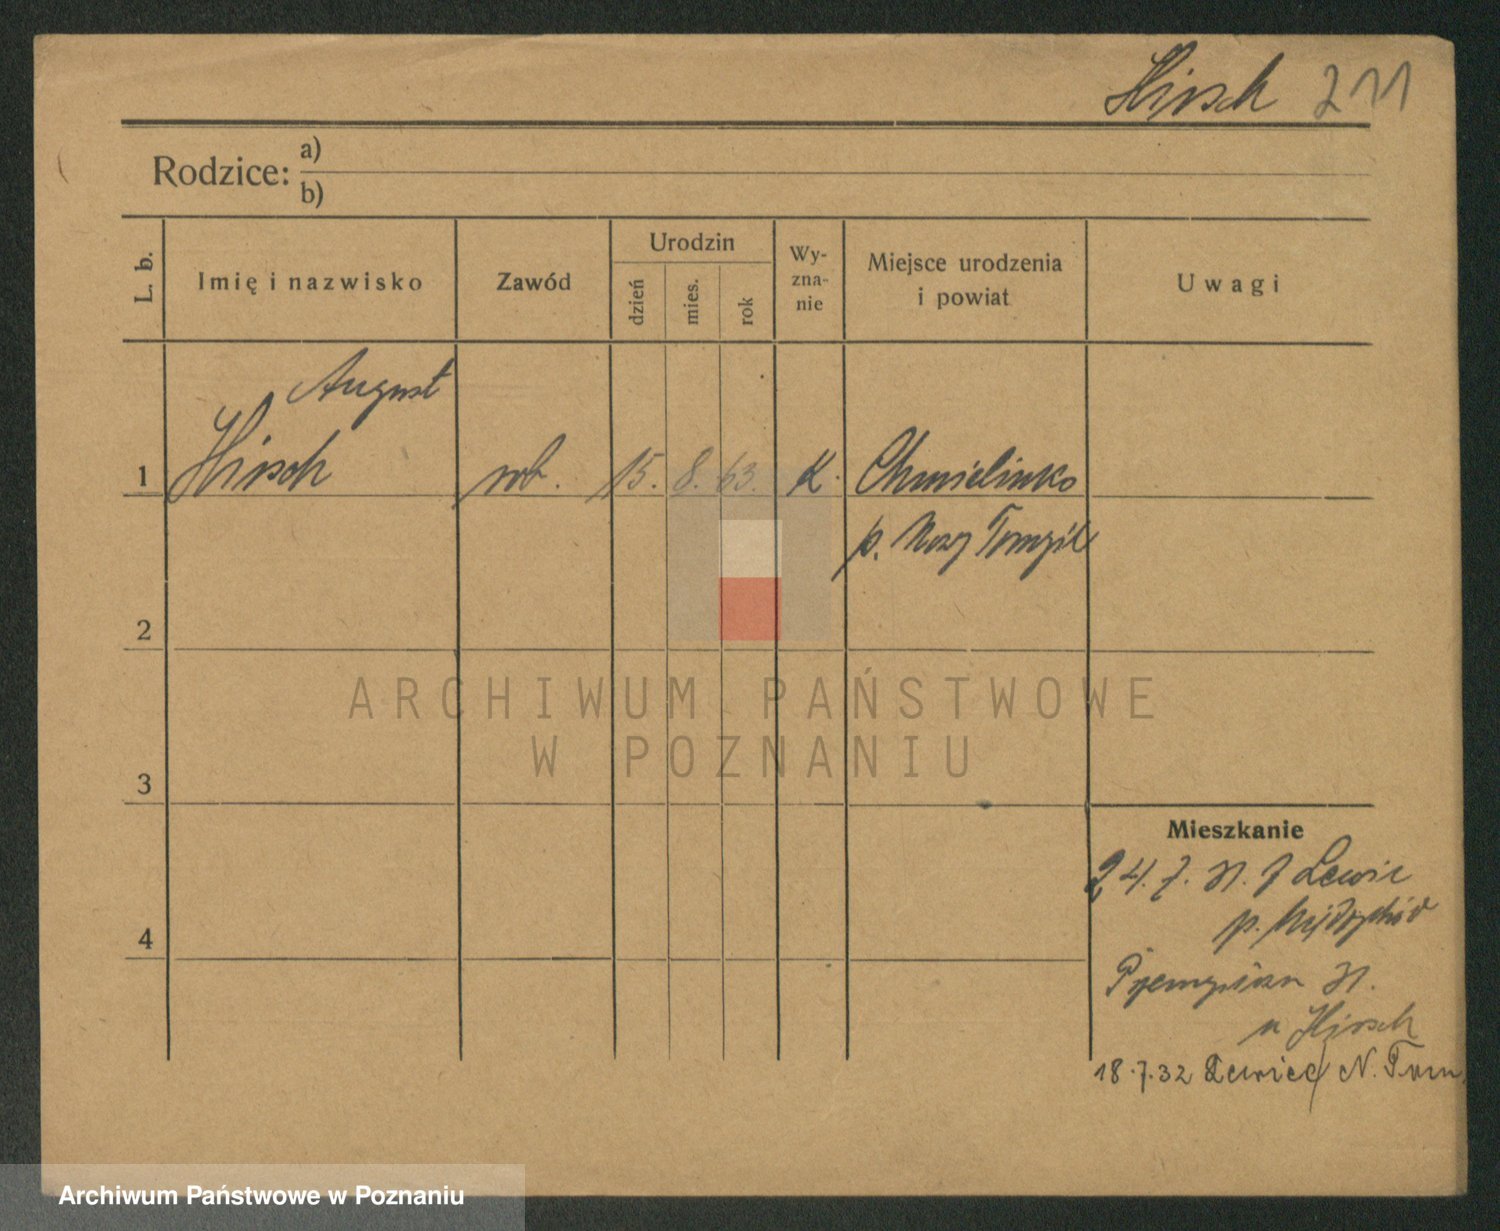 Hirsch 211
Rodzice: a)
b)
L. b.
Imię i nazwisko
Zawód
Urodzin
dzień
mies.
rok
Wy-
zna-
nie
Miejsce urodzenia
i powiat
Uwagi
August
1 Hirsch rob. 15. 8. 63. K. Chmielinko
p. Nowy Tomyśl
2
ARCHIWUM PAŃSTWOWE
W POZNANIU
3
Mieszkanie
24. 7. 31. z Lewic
p. Międzychód
4
31.
u Hirsch
18.7.32 Lewice/ N. Tom.
Archiwum Państwowe w Poznaniu